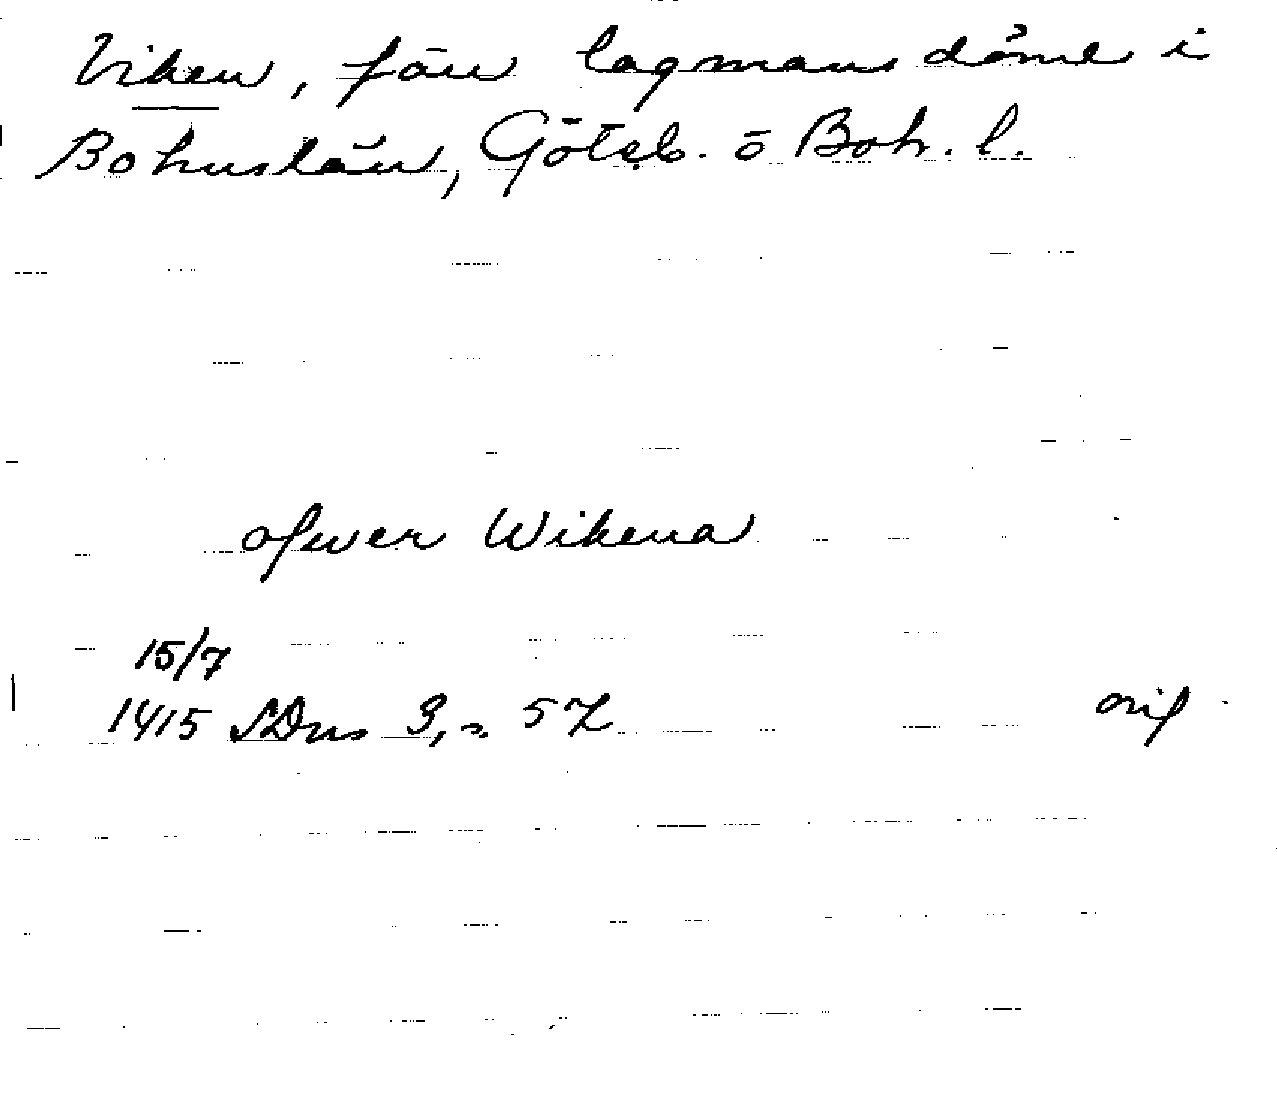 Viken, förr lagmansdöme i
Bohuslän, Göteb. o Boh. l.
ofwer Wikena
15/7
1415 SDns 3, s. 57
orig